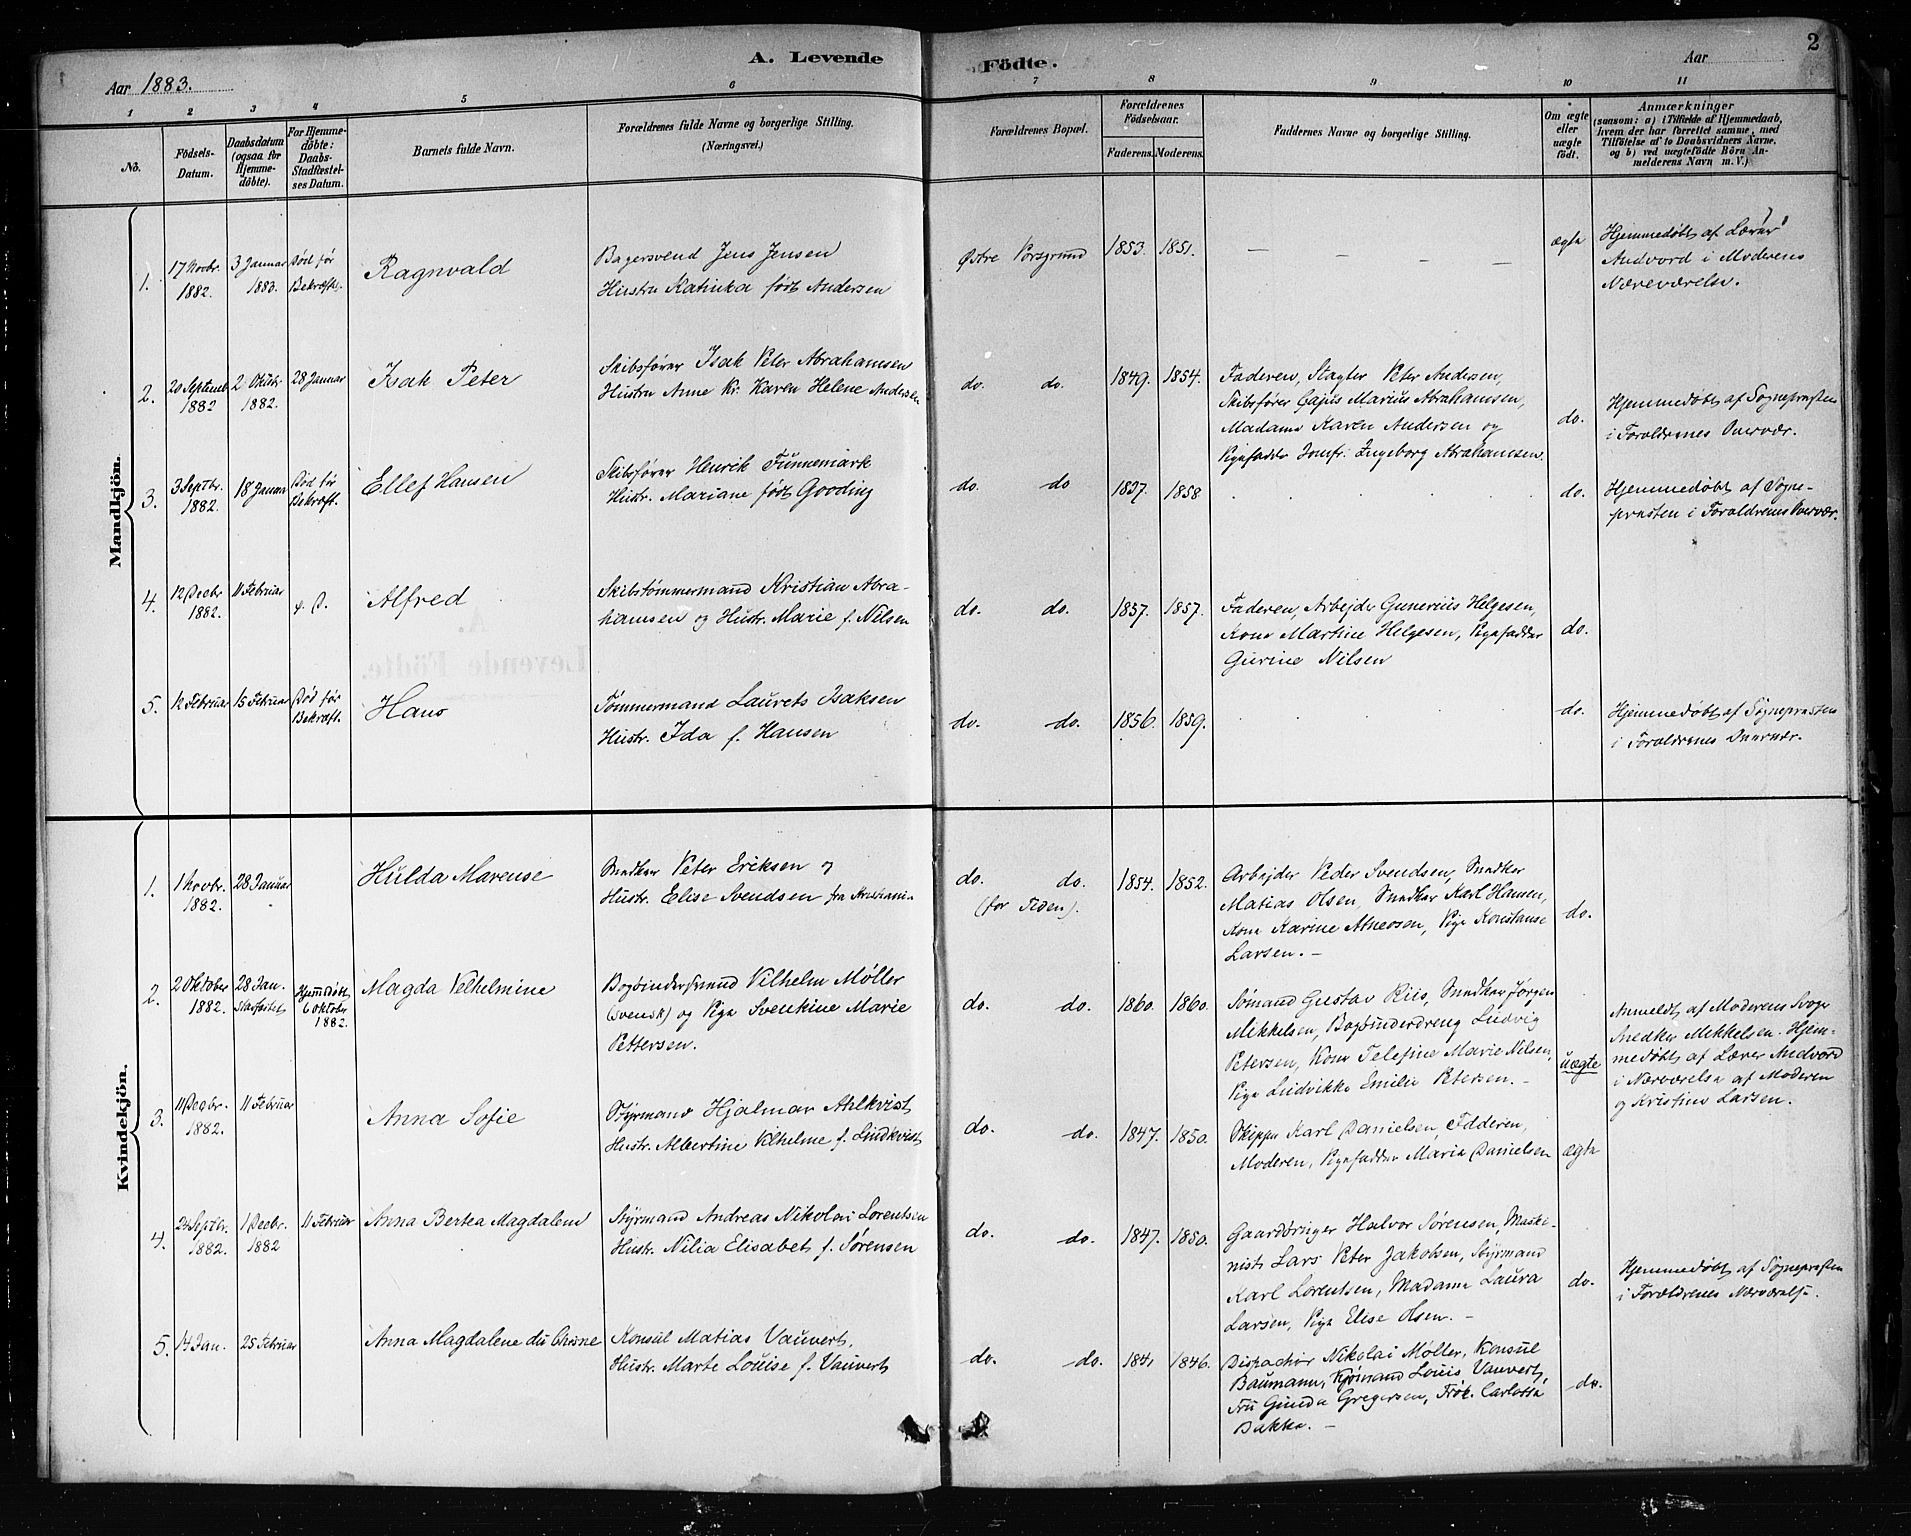 A. Levende Födte.
2
Aar 1883.
Aar
1 2 3 4 5 6 7 8 9 10 11
No.
Födsels-Datum.
Daabsdatum (ogsaa for Hjemmedøbte).
For Hjemmedøbte: Daabs-Stadfæstelses Datum.
Barnets fulde Navn.
Forældrenes fulde Navne og borgerlige Stilling.
(Næringsvei.)
Forældrenes Bopæl.
Forældrenes Födselsaar.
Faderens. Moderens.
Faddernes Navne og borgerlige Stilling.
Om ægte eller uægte født.
Anmærkninger
(saasom: a) i Tilfælde af Hjemmedaab,
hvem der har forrettet samme, med
Tilföielse af to Daabsvidners Navne,
og b) ved uægtefödte Börn Anmelderens Navn m. V.)
Mandkjön.
1. 17 Novbr. 1882. 3 Januar 1883. Død før Bekræft. Ragnvald
Bagersvend Jens Jensen
Hustru Katinka født Andersen
Østre Porsgrund 1853. 1851. — — — — ægte
Hjemmedøbt af Lærer
Andvord i Moderens
Nærværelse.
2. 20 Septemb 1882 2 Oktbr. 1882. 28 Januar Isak Peter
Skibsfører Isak Peter Abrahamsen
Hustru Anne Kr. Karen Helene Andersen
do. do. 1849. 1854.
Faderen, Peter Andersen,
Skibsfører Cajus Marius Abrahamsen,
Madame Karen Andersen og
Pigefadder Jomfr. Ingeborg Abrahamsen.
do.
Hjemmedøbt af Sognepræsten
i Forældrenes Overvær.
3. 3 Septbr. 1882. 18 Januar Død før Bekræft. Ellef Hansen
Skibsfører Henrik Funnemark
Hustr. Mariane født Gooding
do. do 1837. 1858 do.
Hjemmedøbt af Sogne-
præsten i Forældrenes Overvær.
4. 12 Decbr 1882. 11 Februar Alfred
Skibstømmermand Kristian Abra-
hamsen og Hustr. Marie f. Nilsen
do. do. 1857. 1857.
Faderen, Arbejder Gunerius Helgesen,
Kone Martine Helgesen, Pigefadder
Gurine Nilsen
do.
5. 12 Februar 15 Februar Død før Bekræft. Hans
Tømmermand Laurets Isaksen
Hustr. Ida f. Hansen
do. do. 1856. 1859. do.
Hjemmedøbt af Sognepræsten
i Forældrenes Overvær.
Kvindekjön.
1. 1 Novbr. 1882. 28 Januar Hulda Marense
Snedker Peter Eriksen og
Hustr. Elise Svendsen fra
do. do. (for Tiden). 1854. 1852.
Arbejder Peder Svendsen, Snedker
Matias Olsen, Snedker Karl Hansen,
Kone Karine, Pige Konstanse
Larsen. —
do.
2. 2 Oktober 1882. 28 Jan. Stadfæstet Hjemmedøbt 6 Oktober 1882. Magda Vilhelmine
Bogbindersvend Vilhelm Møller
(svensk) og Pige Svenkine Marie
Pettersen.
do. do. 1860. 1860.
Sømand Gustav Riis, Snedker Jørgen
Mikkelsen, Bogbinderdreng Ludvig
Petersen, Kone Telefine Marie Nilsen,
Pige Ludvikke Emilie Petersen. —
uægte
Anmeldt af Moderens Svoger
Snedker Mikkelsen. Hjem-
medøbt af Lærer Andvord
i Nærværelse af Moderen
og Kristine Larsen.
3. 11 Decbr. 1882. 11 Februar Anna Sofie
Styrmand Hjalmar Ahlkvist
Hustr. Albertine Vilhelme f. Lindkvist
do. do. 1847. 1850.
Skipper Karl Danielsen, Fadderen,
Moderen, Pigefadder Marie Danielsen
ægte
4. 24 Septbr. 1882. 1 Decbr. 1882 11 Februar Anna Bertea Magdalene
Styrmand Andreas Nikolai Lorentsen
Hustr. Nilia Elisabet f. Sørensen
do. do. 1847. 1850.
Gaardbruger Halvor Sørensen, Maski-
nist Lars Peter Jakobsen, Styrmand
Karl Lorentsen, Madame Laura
Larsen, Pige Elise Olsen. —
do.
Hjemmedøbt af Sognepræsten
i Forældrenes Nærværelse.
5. 14 Jan. 25 Februar Anna Magdalene du Chisne
Konsul Matias Vauvert,
Hustr. Marte Louise f. Vauvert
do. do. 1841 1846.
Dispachør Nikolai Møller, Konsul
Baumann, Kjømand Louis Vauvert,
Fru Gunda Gregersen, Frøk. Carlotta
Bakke. —
do.